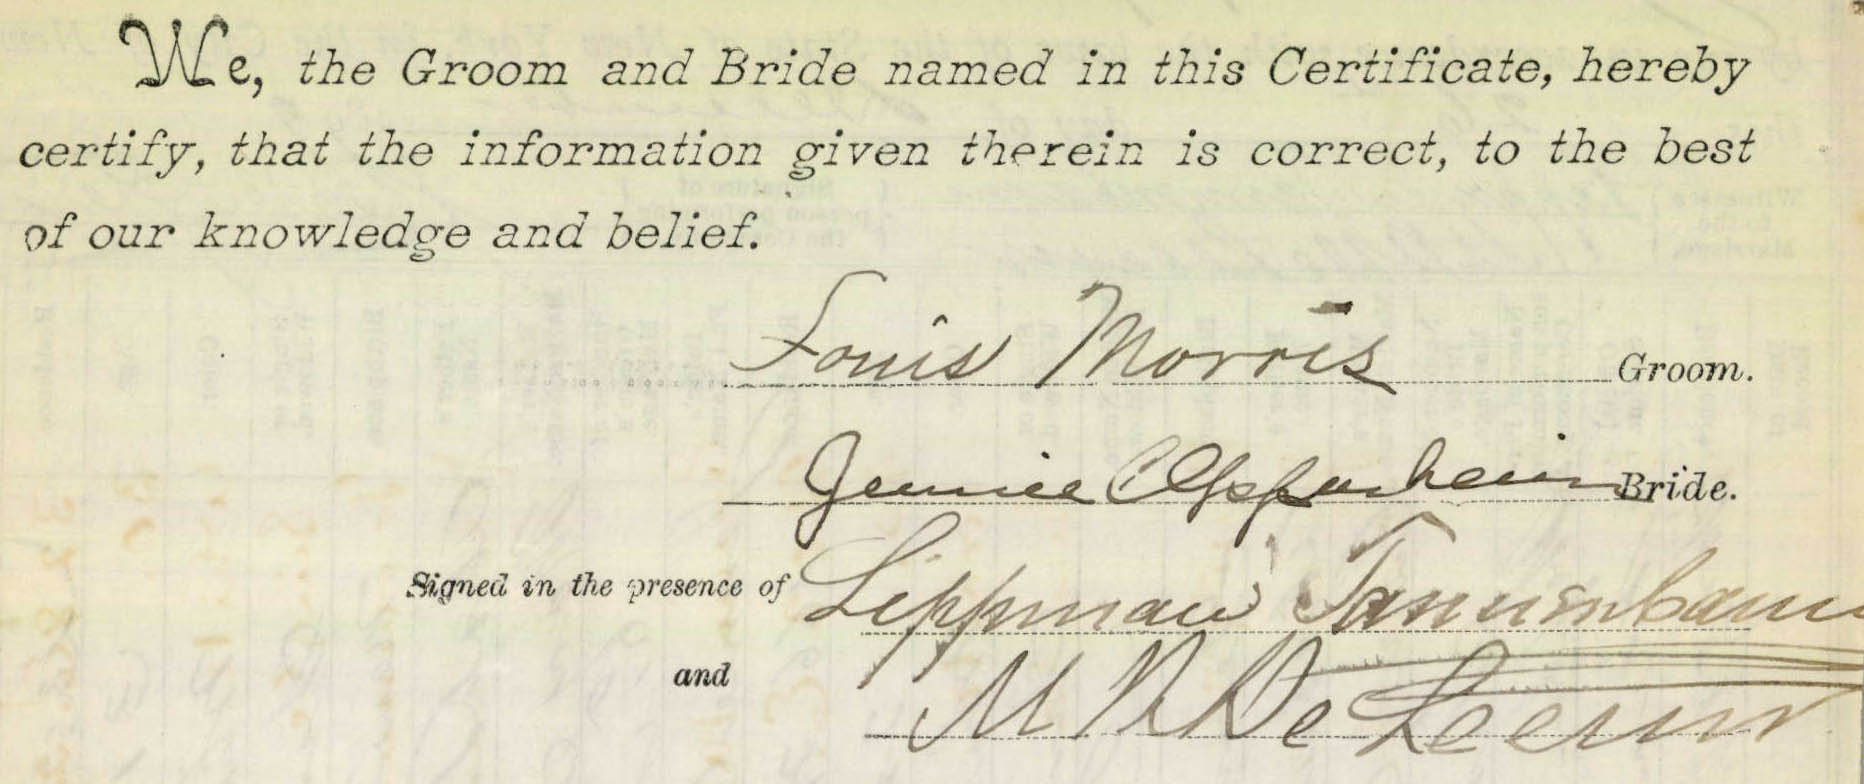 We, the Groom and Bride named in this Certificate, hereby
certify, that the information given therein is correct, to the best
of our knowledge and belief.
Louis Morris Groom.
Jennie Oppenheim Bride.
Signed in the presence of Lippman Tannenbaum
and M R De Leeuw